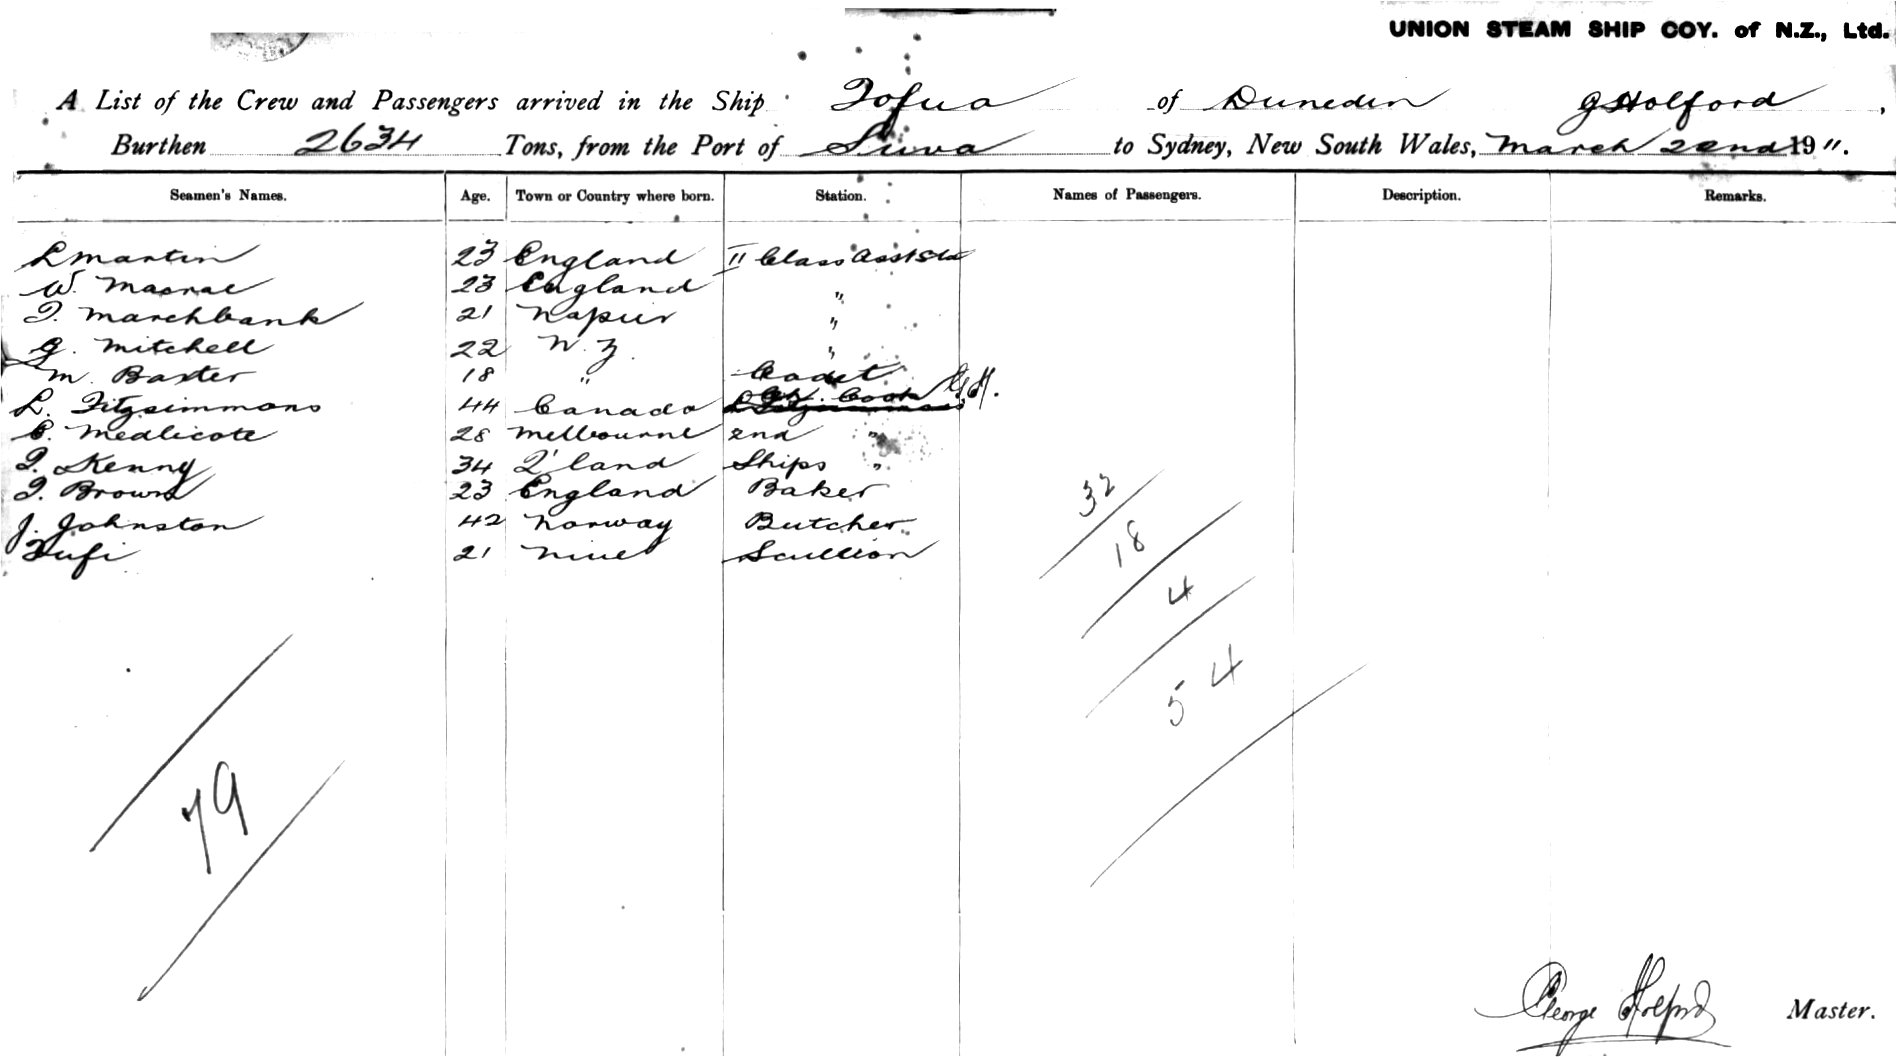 UNION STEAM SHIP COY. of N.Z., Ltd.
A List of the Crew and Passengers arrived in the Ship Tofua of Dunedin G Holford,
Burthen 2634 Tons, from the Port of Suva to Sydney, New South Wales, March 22nd 19 11.
Seamen's Names. Age. Town or Country where born. Station. Names of Passengers. Description. Remarks.
L Martin 23 England II Class Asst Std
W. Macrae 23 England "
T. Marchbank 21 Napier "
G. Mitchell 22 N. Z. "
M. Baxter 18 " Cadet
L. Fitzsimmons 44 Canada Ch. Cook G.H.
C. Medlicote 28 Melbourne 2nd "
T. Kenny 34 Q'land Ships "
T. Brown 23 England Baker
J. Johnston 42 Norway Butcher
Tufi 21 Niue Scullion
32
18
4
54
79
George Holford Master.